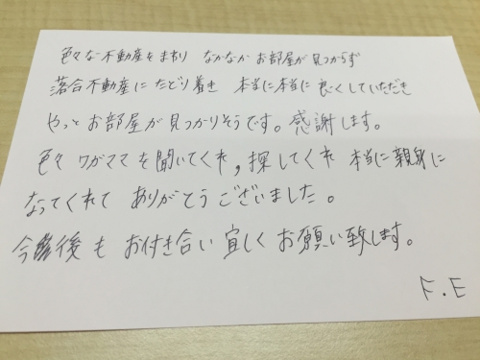 色々な不動産をまわり なかなか お部屋が見つからず
落合不動産に たどり着き 本当に本当に 良くしていただき
やっと お部屋が 見つかりそうです。感謝します。
色々 ワガママを聞いてくれ,探してくれ 本当に親身に
なってくれて ありがとうございました。
今後も お付き合い 宜しく お願い致します。
F.E